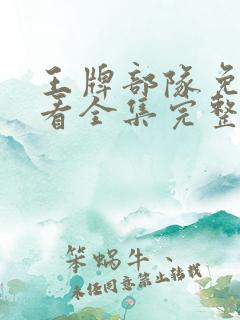 王牌部隊免
看全集完整
笨蜗牛、
未经同意禁止转载